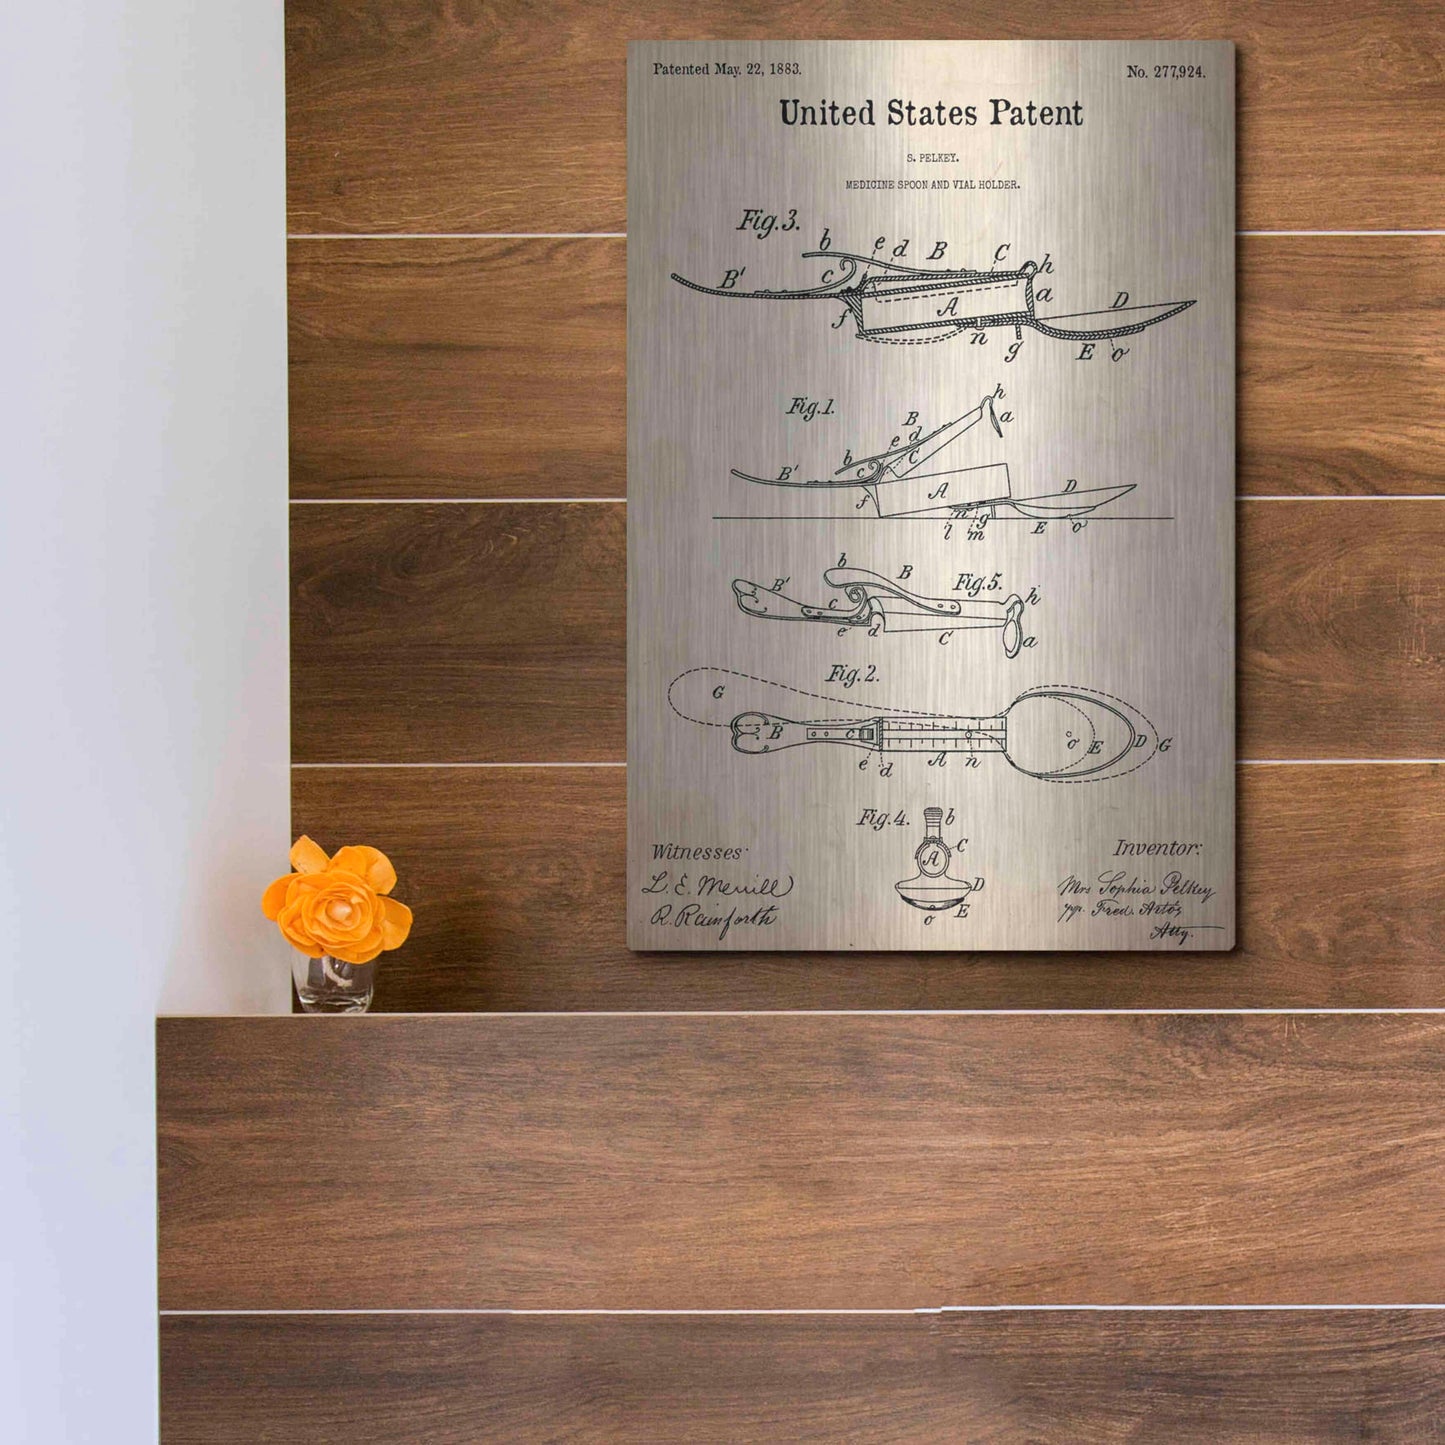 Patented May. 22, 1883.
No. 277,924.
United States Patent
S. PELKEY.
MEDICINE SPOON AND VIAL HOLDER.
Fig. 3.
b e d B C h
B' c A a D
f n g E o
Fig. 1.
h
B a
e d
b C
B' c
f A D
n g E o
l m
Fig. 5.
b B
B' c h
e d C a
Fig. 2.
G
B c o E D G
e d A n
Fig. 4.
b
C
A
D
E
o
Witnesses:
L. E. Merrill
R. Rainforth
Inventor:
Mrs Sophia Pelkey
Fred.
Atty.